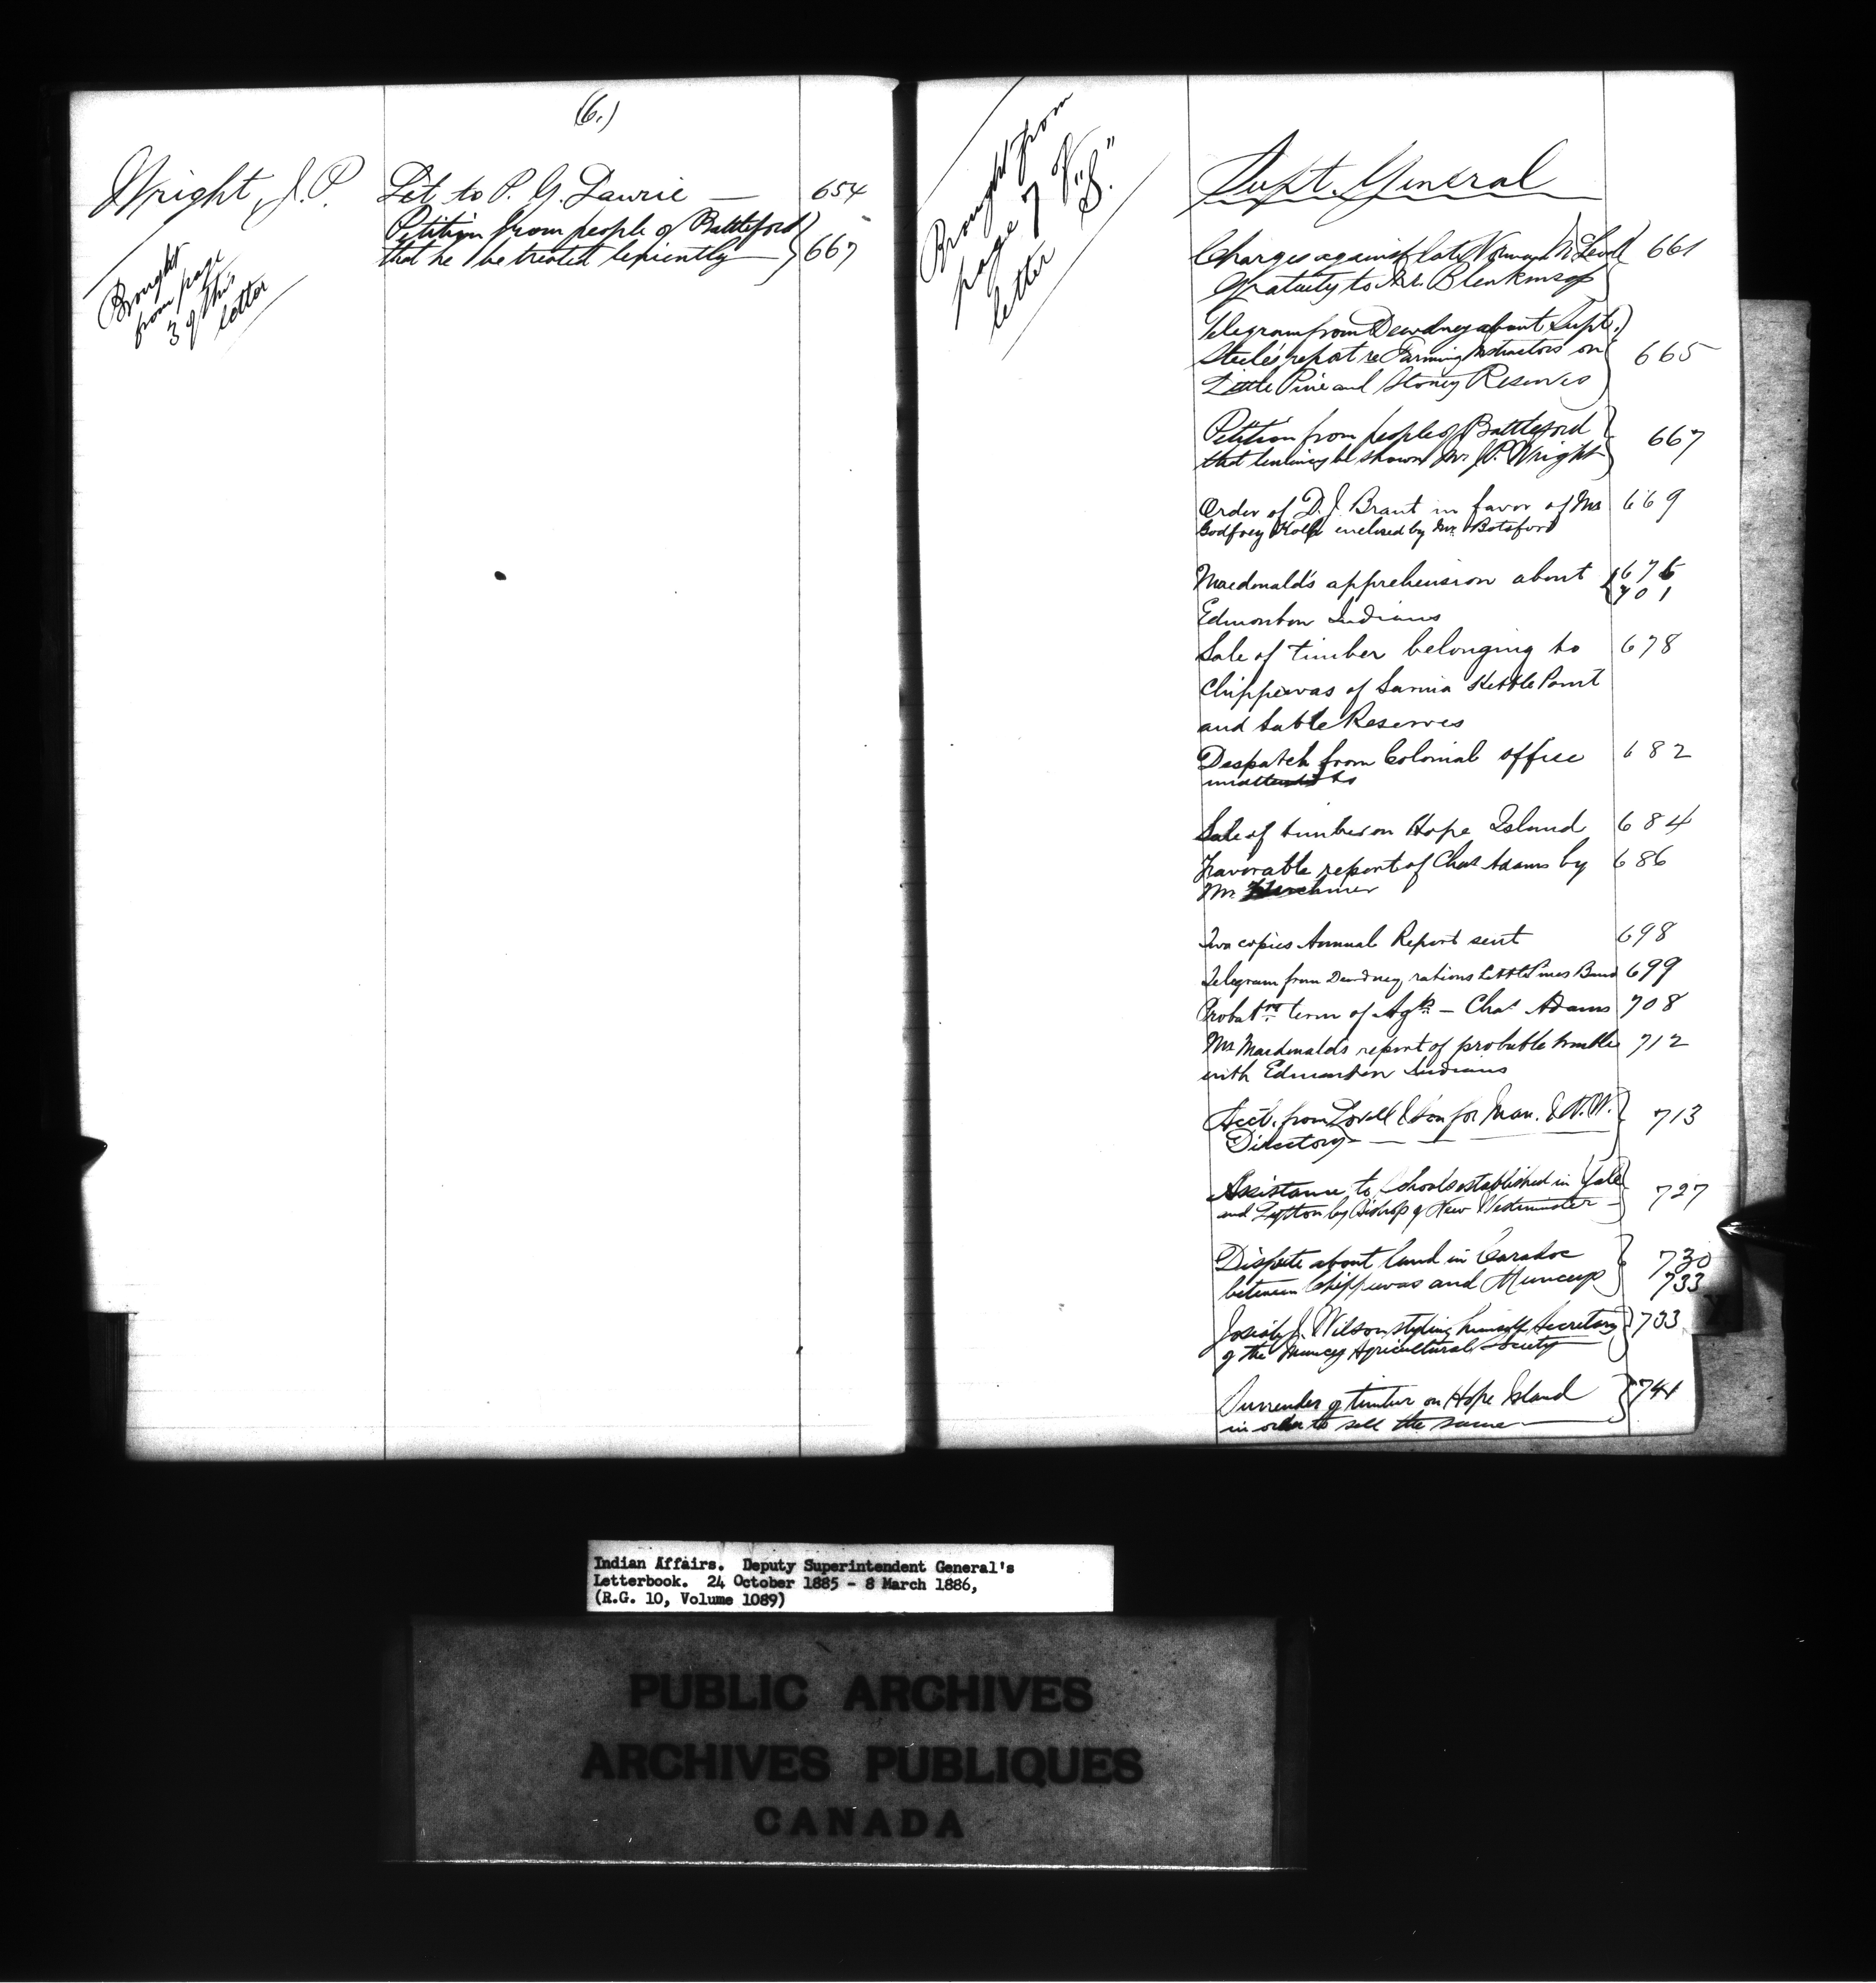 (6.)
Wright, J. P.
Let to P. G. Laurie — 654
Petition from people of Battleford
that he be treated leniently — 667
Brought
from page
3 of this
letter
Brought from
page 7 of
letter "S."
Supt. General
Charges against late Norman McLeod 661
Gratuity to Mr. Blenkinsop
Telegram from Dewdney about Supt.
Steele's report re Farming Instructors on 665
Little Pine and Stoney Reserves
Petition from people of Battleford 667
that leniency be shown Mr J. P. Wright
Order of D. J. Brant in favor of Mrs 669
Godfrey enclosed by Mr. Botsford
Macdonald's apprehension about 676
701
Edmonton Indians
Sale of timber belonging to 678
Chippewas of Sarnia Kettle Point
and Sable Reserves
Despatch from Colonial office 682
Sale of timber on Hope Island 684
Favorable report of Chas Adams by 686
Mr. Herchmer
Two copies Annual Report sent 698
Telegram from Dewdney rations Little Pines Band 699
Probatry term of Agt — Chas Adams 708
Mr Macdonald's report of probable trouble 712
with Edmonton Indians
Acct. from Lovell & Son for Man. & N.W. 713
Directory — — —
Assistance to Schools established in Yale 727
and Lytton by Bishop of New Westminster —
Dispute about land in Caradoc 730
between Chippewas and Munceys 733
Josiah J. Wilson styling himself Secretary 733
of the Muncey Agricultural Society
Surrender of timber on Hope Island 741
in order to sell the same —
Y
Indian Affairs. Deputy Superintendent General's
Letterbook. 24 October 1885 - 8 March 1886,
(R.G. 10, Volume 1089)
PUBLIC ARCHIVES
ARCHIVES PUBLIQUES
CANADA